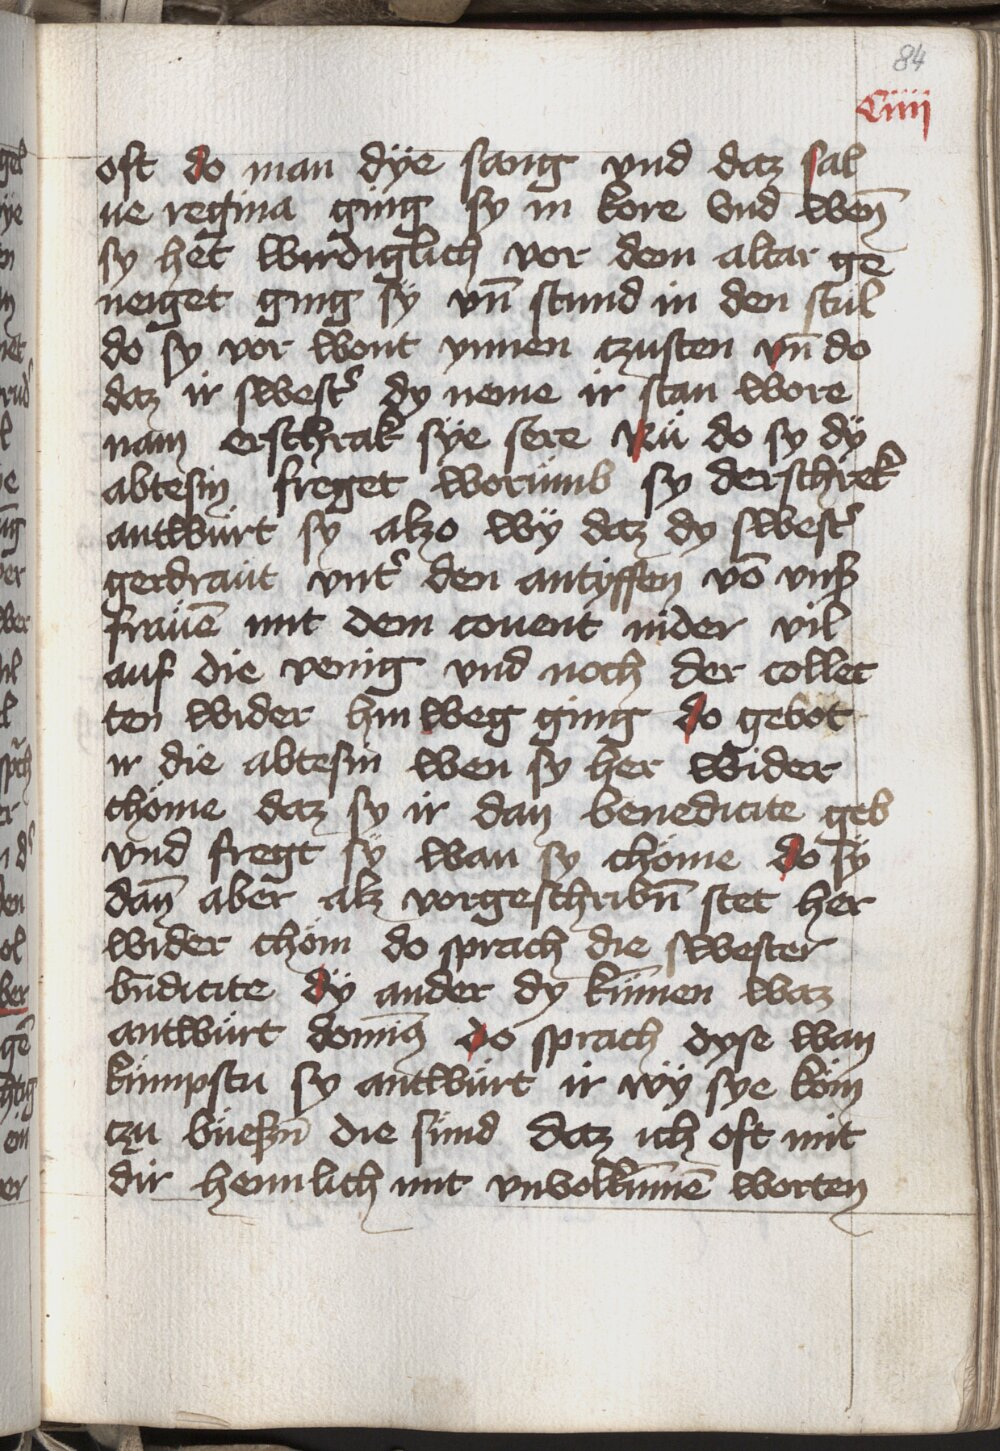 84
Ciiij
oft do man dÿe sang vnd daz sal
ue regina ging sy in kore vnd wen̄
sy het wirdiglich vor dem altar ge
neiget ging sÿ vn̄ stund in den stul
do sy vor wont ynnen czusten vn̄ do
daz ir swest͛ dy neme ir stan wore
nam erschrak sÿe sere Nü do sy dÿ
abtesin freget worümb sy derschrek
antwürt sy alzo wÿ daz dy swest͛
gerdraüt vnt͛ den antÿffen vō vnß
fraüē mit dem couent nider vil
auf die venig vnd noch der collec
ten wider hin weg ging do gebot
ir die abtesin wen sy her wider
chöme daz sy ir dan benedicite geb
vnd fregt sÿ wan sy chöme do sÿ
dan̄ aber alz vorgeschribn̄ stet her
wider chöm do sprach die swester
bn̄dicite dÿ ander dy künnen waz
antwürt domin͛ do sprach dyse wan
kümpstu sy antwürt ir wÿ sye köm
czu büeßn̄ die sünd daz ich oft mit
dir heimlich mit vnvolkümē worten